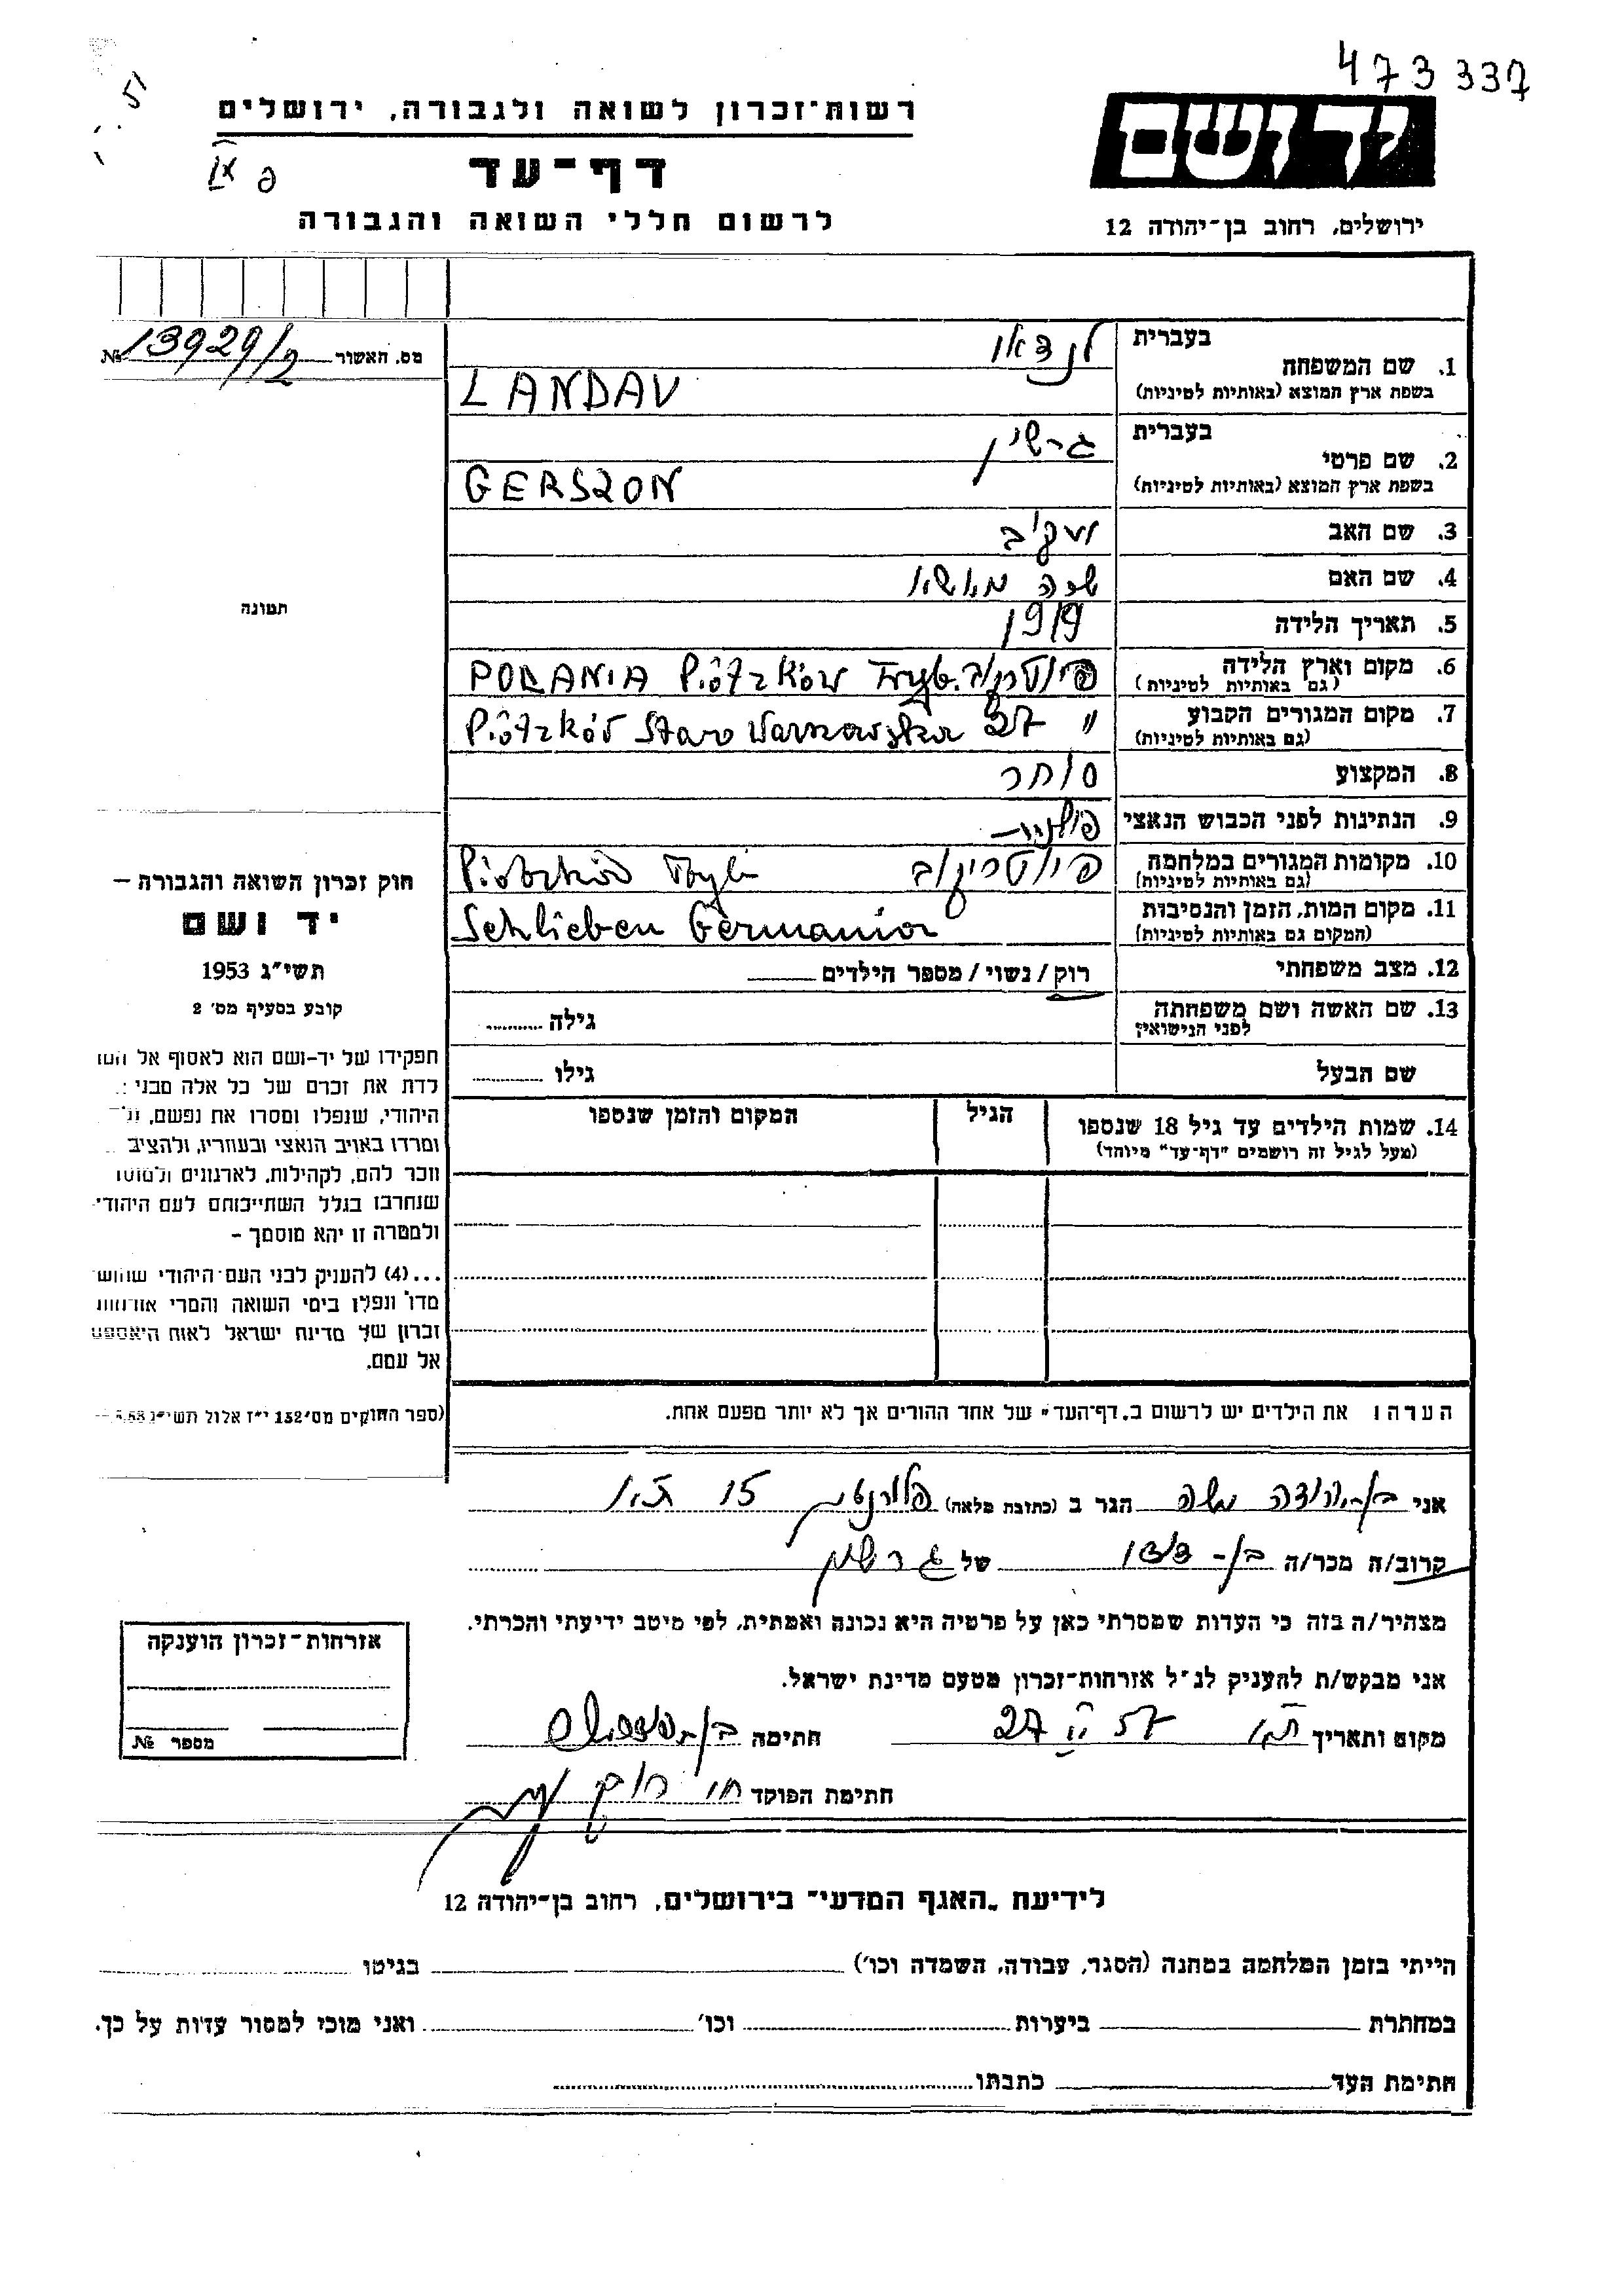 473337
רשות-זכרון לשואה ולגבורה, ירושלים
יד ושם
דף-עד
לרשום חללי השואה והגבורה
ירושלים, רחוב בן-יהודה 12
מס. האשור № 13929/2
בעברית לנדאו
1. שם המשפחה
בשפת ארץ המוצא (באותיות לטיניות) LANDAU
בעברית גרשון
2. שם פרטי
בשפת ארץ המוצא (באותיות לטיניות) GERSZON
3. שם האב יעקב
4. שם האם שרה
5. תאריך הלידה 1919
6. מקום וארץ הלידה פיוטרקוב POLANIA Piótzków Tryb.
(גם באותיות לטיניות)
7. מקום המגורים הקבוע " Piótzków Staro Warszawska 27
(גם באותיות לטיניות)
8. המקצוע סוחר
9. הנתינות לפני הכבוש הנאצי פולנית
10. מקומות המגורים במלחמה פיוטריקוב Piotzków Tryb
(גם באותיות לטיניות)
11. מקום המות, הזמן והנסיבות Schlieben Germania
(המקום גם באותיות לטיניות)
12. מצב משפחתי רוק/נשוי/מספר הילדים
13. שם האשה ושם משפחתה גילה
לפני הנישואין
שם הבעל גילו
14. שמות הילדים עד גיל 18 שנספו הגיל המקום והזמן שנספו
(מעל לגיל זה רושמים "דף-עד" מיוחד)
תמונה
חוק זכרון השואה והגבורה –
יד ושם
תשי"ג 1953
קובע בסעיף מס' 2
תפקידו של יד-ושם הוא לאסוף אל
לדת את זכרם של כל אלה מבני
היהודי, שנפלו ומסרו את נפשם,
ומרדו באויב הנאצי ובעוזריו, ולהציב
זכר להם, לקהילות, לארגונים
שנחרבו בגלל השתייכותם לעם היהודי
ולמטרה זו יהא מוסמך –
...(4) להעניק לבני העם היהודי
ונפלו בימי השואה והמרי אזרחות
זכרון של מדינת ישראל לאות
אל עמם.
(ספר החוקים מס' 132 י"ז אלול תשי"ג
הערה: את הילדים יש לרשום ב"דף-העד" של אחד ההורים אך לא יותר מפעם אחת.
אני בן-יהודה משה הגר ב (כתובת מלאה) פלורנטין 15 ת.א
קרוב/ה מכר/ה בן-דודו של גרשון
מצהיר/ה בזה כי העדות שמסרתי כאן על פרטיה היא נכונה ואמתית, לפי מיטב ידיעתי והכרתי.
אני מבקש/ת להעניק לנ"ל אזרחות-זכרון מטעם מדינת ישראל.
מקום ותאריך ת.א 27 II 57 חתימה
חתימת הפוקד
אזרחות-זכרון הוענקה
מספר №
לידיעת "האגף המדעי" בירושלים, רחוב בן-יהודה 12
הייתי בזמן המלחמה במחנה (הסגר, עבודה, השמדה וכו') בגיטו
במחתרת ביערות וכו' ואני מוכן למסור עדות על כך.
חתימת העד כתבתו